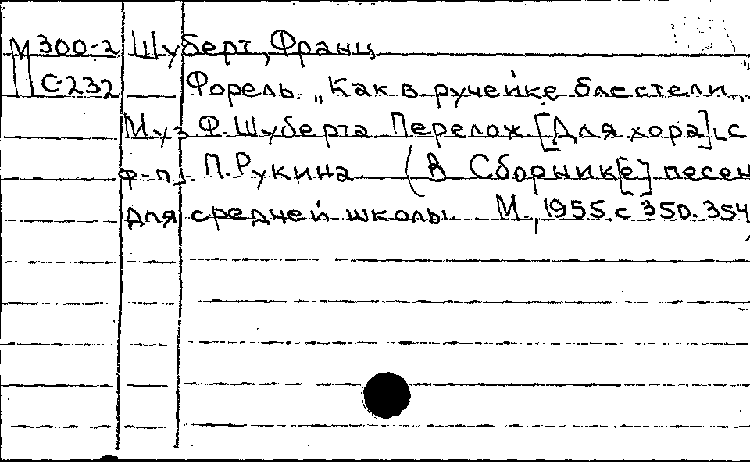 М 300-2 Шуберт, Франц
С-232 Форель. „Как в ручейке блестели..
Муз Ф. Шуберта Перелож. [Для хора], с
ф-п. П. Рукина (В Сборник[е] песен
для средней школы. М., 1955. с 350-354